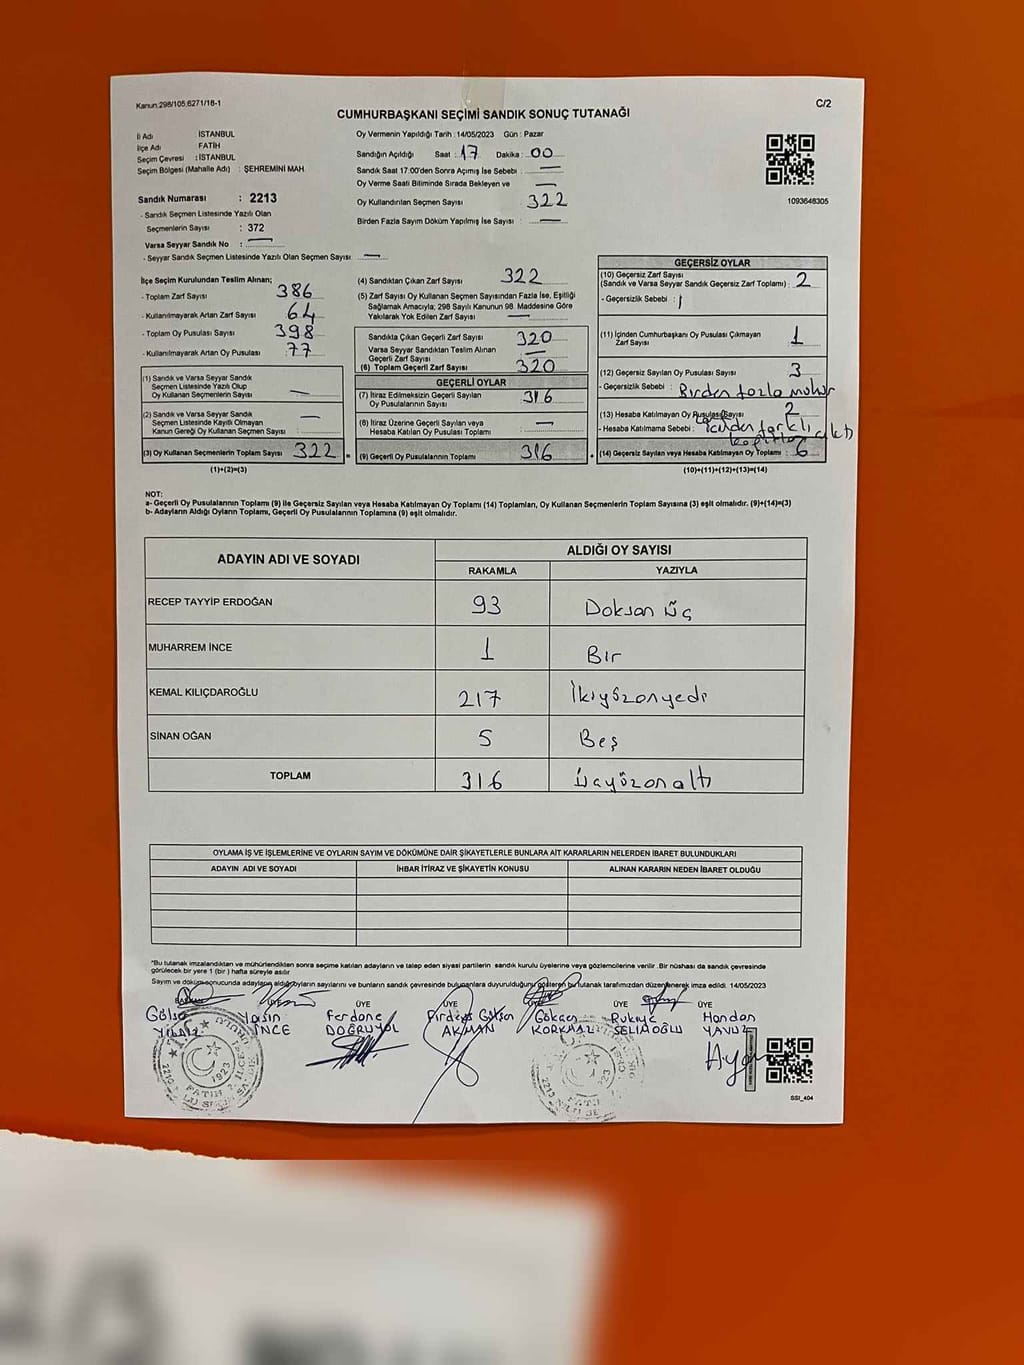 Kanun:298/105,6271/18-1
C/2
CUMHURBAŞKANI SEÇİMİ SANDIK SONUÇ TUTANAĞI
İl Adı İSTANBUL
İlçe Adı FATİH
Seçim Çevresi : İSTANBUL
Seçim Bölgesi (Mahalle Adı) : ŞEHREMİNİ MAH.
Sandık Numarası : 2213
- Sandık Seçmen Listesinde Yazılı Olan
Seçmenlerin Sayısı : 372
Varsa Seyyar Sandık No : —
- Seyyar Sandık Seçmen Listesinde Yazılı Olan Seçmen Sayısı: —
Oy Vermenin Yapıldığı Tarih : 14/05/2023 Gün : Pazar
Sandığın Açıldığı Saat : 17 Dakika : 00
Sandık Saat 17.00'den Sonra Açımış İse Sebebi : —
Oy Verme Saati Bitiminde Sırada Bekleyen ve —
Oy Kullandırılan Seçmen Sayısı 322
Birden Fazla Sayım Döküm Yapılmış İse Sayısı : —
1093648305
İlçe Seçim Kurulundan Teslim Alınan;
- Toplam Zarf Sayısı 386
- Kullanılmayarak Artan Zarf Sayısı : 64
- Toplam Oy Pusulası Sayısı : 398
- Kullanılmayarak Artan Oy Pusulası : 77
(1) Sandık ve Varsa Seyyar Sandık
Seçmen Listesinde Yazılı Olup
Oy Kullanan Seçmenlerin Sayısı : —
(2) Sandık ve Varsa Seyyar Sandık
Seçmen Listesinde Kayıtlı Olmayan
Kanun Gereği Oy Kullanan Seçmen Sayısı : —
(3) Oy Kullanan Seçmenlerin Toplam Sayısı : 322
(1)+(2)=(3)
(4) Sandıktan Çıkan Zarf Sayısı : 322
(5) Zarf Sayısı Oy Kullanan Seçmen Sayısından Fazla İse, Eşitliği
Sağlamak Amacıyla; 298 Sayılı Kanunun 98. Maddesine Göre
Yakılarak Yok Edilen Zarf Sayısı : —
Sandıkta Çıkan Geçerli Zarf Sayısı : 320
Varsa Seyyar Sandıktan Teslim Alınan
Geçerli Zarf Sayısı : —
(6) Toplam Geçerli Zarf Sayısı : 320
GEÇERLİ OYLAR
(7) İtiraz Edilmeksizin Geçerli Sayılan
Oy Pusulalarının Sayısı : 316
(8) İtiraz Üzerine Geçerli Sayılan veya
Hesaba Katılan Oy Pusulası Toplamı : —
(9) Geçerli Oy Pusulalarının Toplamı : 316
GEÇERSİZ OYLAR
(10) Geçersiz Zarf Sayısı
(Sandık ve Varsa Seyyar Sandık Geçersiz Zarf Toplamı) : 2
- Geçersizlik Sebebi :
(11) İçinden Cumhurbaşkanı Oy Pusulası Çıkmayan
Zarf Sayısı : 1
(12) Geçersiz Sayılan Oy Pusulası Sayısı : 3
- Geçersizlik Sebebi : Birden fazla mühür
(13) Hesaba Katılmayan Oy Pusulası Sayısı : 2
- Hesaba Katılmama Sebebi : içinden farklı
çıktı
(14) Geçersiz Sayılan veya Hesaba Katılmayan Oy Toplamı : 6
(10)+(11)+(12)+(13)=(14)
NOT:
a- Geçerli Oy Pusulalarının Toplamı (9) ile Geçersiz Sayılan veya Hesaba Katılmayan Oy Toplamı (14) Toplamları, Oy Kullanan Seçmenlerin Toplam Sayısına (3) eşit olmalıdır. (9)+(14)=(3)
b- Adayların Aldığı Oyların Toplamı, Geçerli Oy Pusulalarının Toplamına (9) eşit olmalıdır.
ADAYIN ADI VE SOYADI ALDIĞI OY SAYISI
RAKAMLA YAZIYLA
RECEP TAYYİP ERDOĞAN 93 Doksan üç
MUHARREM İNCE 1 Bir
KEMAL KILIÇDAROĞLU 217 İkiyüzonyedi
SİNAN OĞAN 5 Beş
TOPLAM 316 üçyüzonaltı
OYLAMA İŞ VE İŞLEMLERİNE VE OYLARIN SAYIM VE DÖKÜMÜNE DAİR ŞİKAYETLERLE BUNLARA AİT KARARLARIN NELERDEN İBARET BULUNDUKLARI
ADAYIN ADI VE SOYADI İHBAR İTİRAZ VE ŞİKAYETİN KONUSU ALINAN KARARIN NEDEN İBARET OLDUĞU
*Bu tutanak imzalandıktan ve mühürlendikten sonra seçime katılan adayların ve talep eden siyasi partilerin sandık kurulu üyelerine veya gözlemcilerine verilir. Bir nüshası da sandık çevresinde
görülecek bir yere 1 (bir) hafta süreyle asılır.
Sayım ve döküm sonucunda adayların aldığı oyların sayılarını ve bunların sandık çevresinde bulunanlara duyurulduğunu gösteren bu tutanak tarafımızdan düzenlenerek imza edildi. 14/05/2023
BAŞKAN ÜYE ÜYE ÜYE ÜYE ÜYE
Yasin Ferdane Firdevs Gülsen Gökçen Rukiye Handan
YILMAZ İNCE DOĞRUYOL AKMAN KORKMAZ SELİMOĞLU YAVUZ
1923
SSI_404